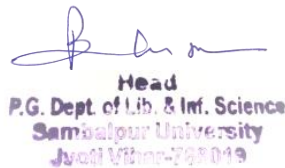 Head
P.G. Dept. of Lib. & Inf. Science
Sambalpur University
Jyoti Vihar-768019